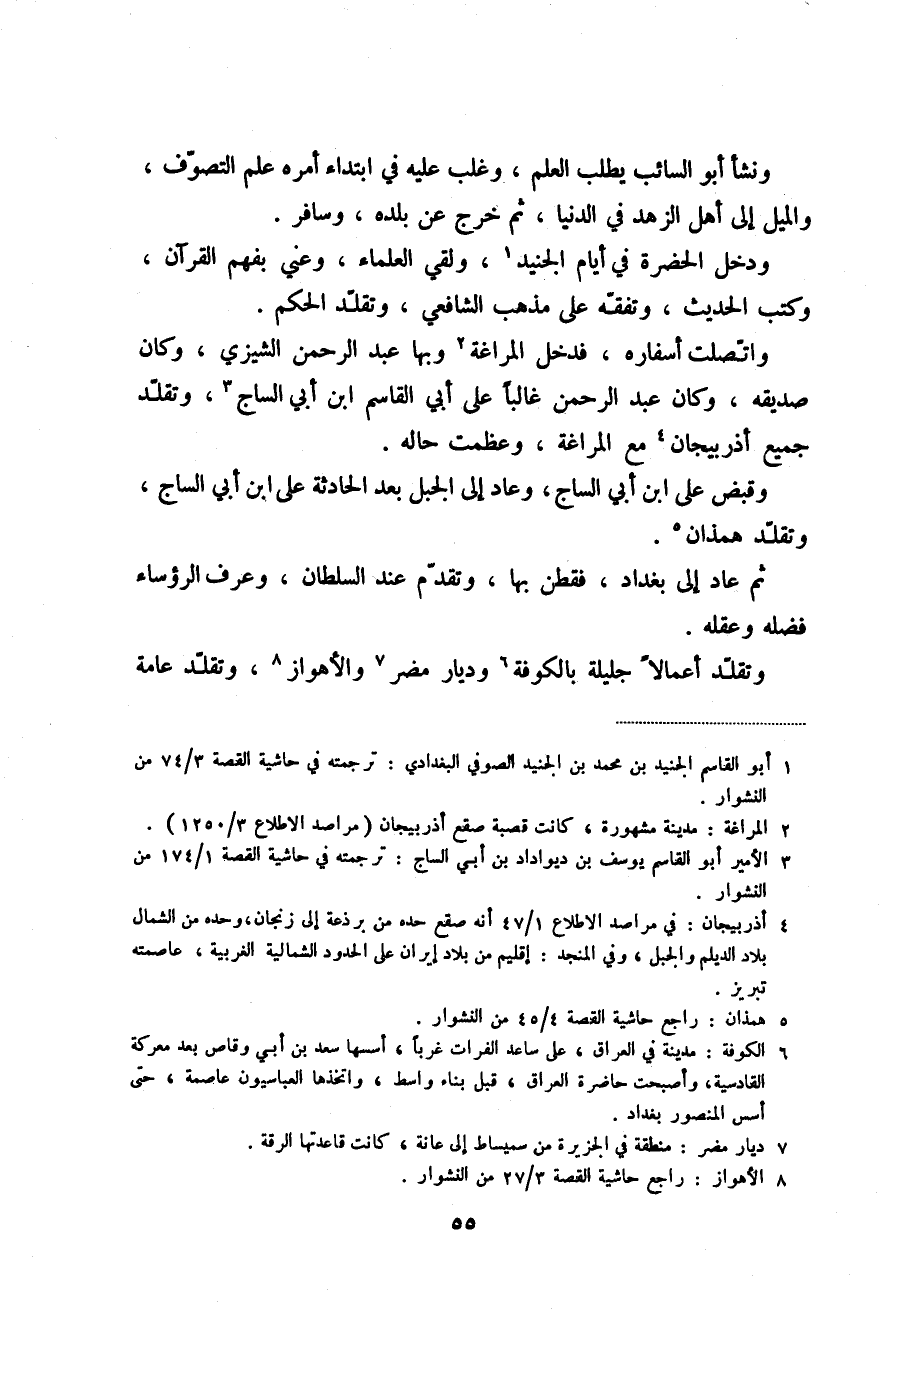 ونشأ أبو السائب يطلب العلم ، وغلب عليه في ابتداء أمره علم التصوّف ،
والميل إلى أهل الزهد في الدنيا ، ثم خرج عن بلده ، وسافر .
ودخل الحضرة في أيام الجنيد١ ، ولقي العلماء ، وعني بفهم القرآن ،
وكتب الحديث ، وتفقّه على مذهب الشافعي ، وتقلّد الحكم .
واتّصلت أسفاره ، فدخل المراغة٢ وبها عبد الرحمن الشيزي ، وكان
صديقه ، وكان عبد الرحمن غالباً على أبي القاسم ابن أبي الساج٣ ، وتقلّد
جميع أذربيجان٤ مع المراغة ، وعظمت حاله .
وقبض على ابن أبي الساج ، وعاد إلى الجبل بعد الحادثة على ابن أبي الساج ،
وتقلّد همذان٥ .
ثم عاد إلى بغداد ، فقطن بها ، وتقدّم عند السلطان ، وعرف الرؤساء
فضله وعقله .
وتقلّد أعمالاً جليلة بالكوفة٦ وديار مضر٧ والأهواز٨ ، وتقلّد عامة
١ أبو القاسم الجنيد بن محمد بن الجنيد الصوفي البغدادي : ترجمته في حاشية القصة ٧٤/٣ من
النشوار .
٢ المراغة : مدينة مشهورة ، كانت قصبة صقع أذربيجان (مراصد الاطلاع ١٢٥٠/٣) .
٣ الأمير أبو القاسم يوسف بن ديواداد بن أبي الساج : ترجمته في حاشية القصة ١٧٤/١ من
النشوار .
٤ أذربيجان : في مراصد الاطلاع ٤٧/١ أنه صقع حده من برذعة إلى زنجان، وحده من الشمال
بلاد الديلم والجبل ، وفي المنجد : إقليم من بلاد إيران على الحدود الشمالية الغربية ، عاصمته
تبريز .
٥ همذان : راجع حاشية القصة ٤٥/٤ من النشوار .
٦ الكوفة : مدينة في العراق ، على ساعد الفرات غرباً ، أسسها سعد بن أبي وقاص بعد معركة
القادسية، وأصبحت حاضرة العراق ، قبل بناء واسط ، واتخذها العباسيون عاصمة ، حتى
أسس المنصور بغداد .
٧ ديار مضر : منطقة في الجزيرة من سميساط إلى عانة ، كانت قاعدتها الرقة .
٨ الأهواز : راجع حاشية القصة ٢٧/٣ من النشوار .
٥٥